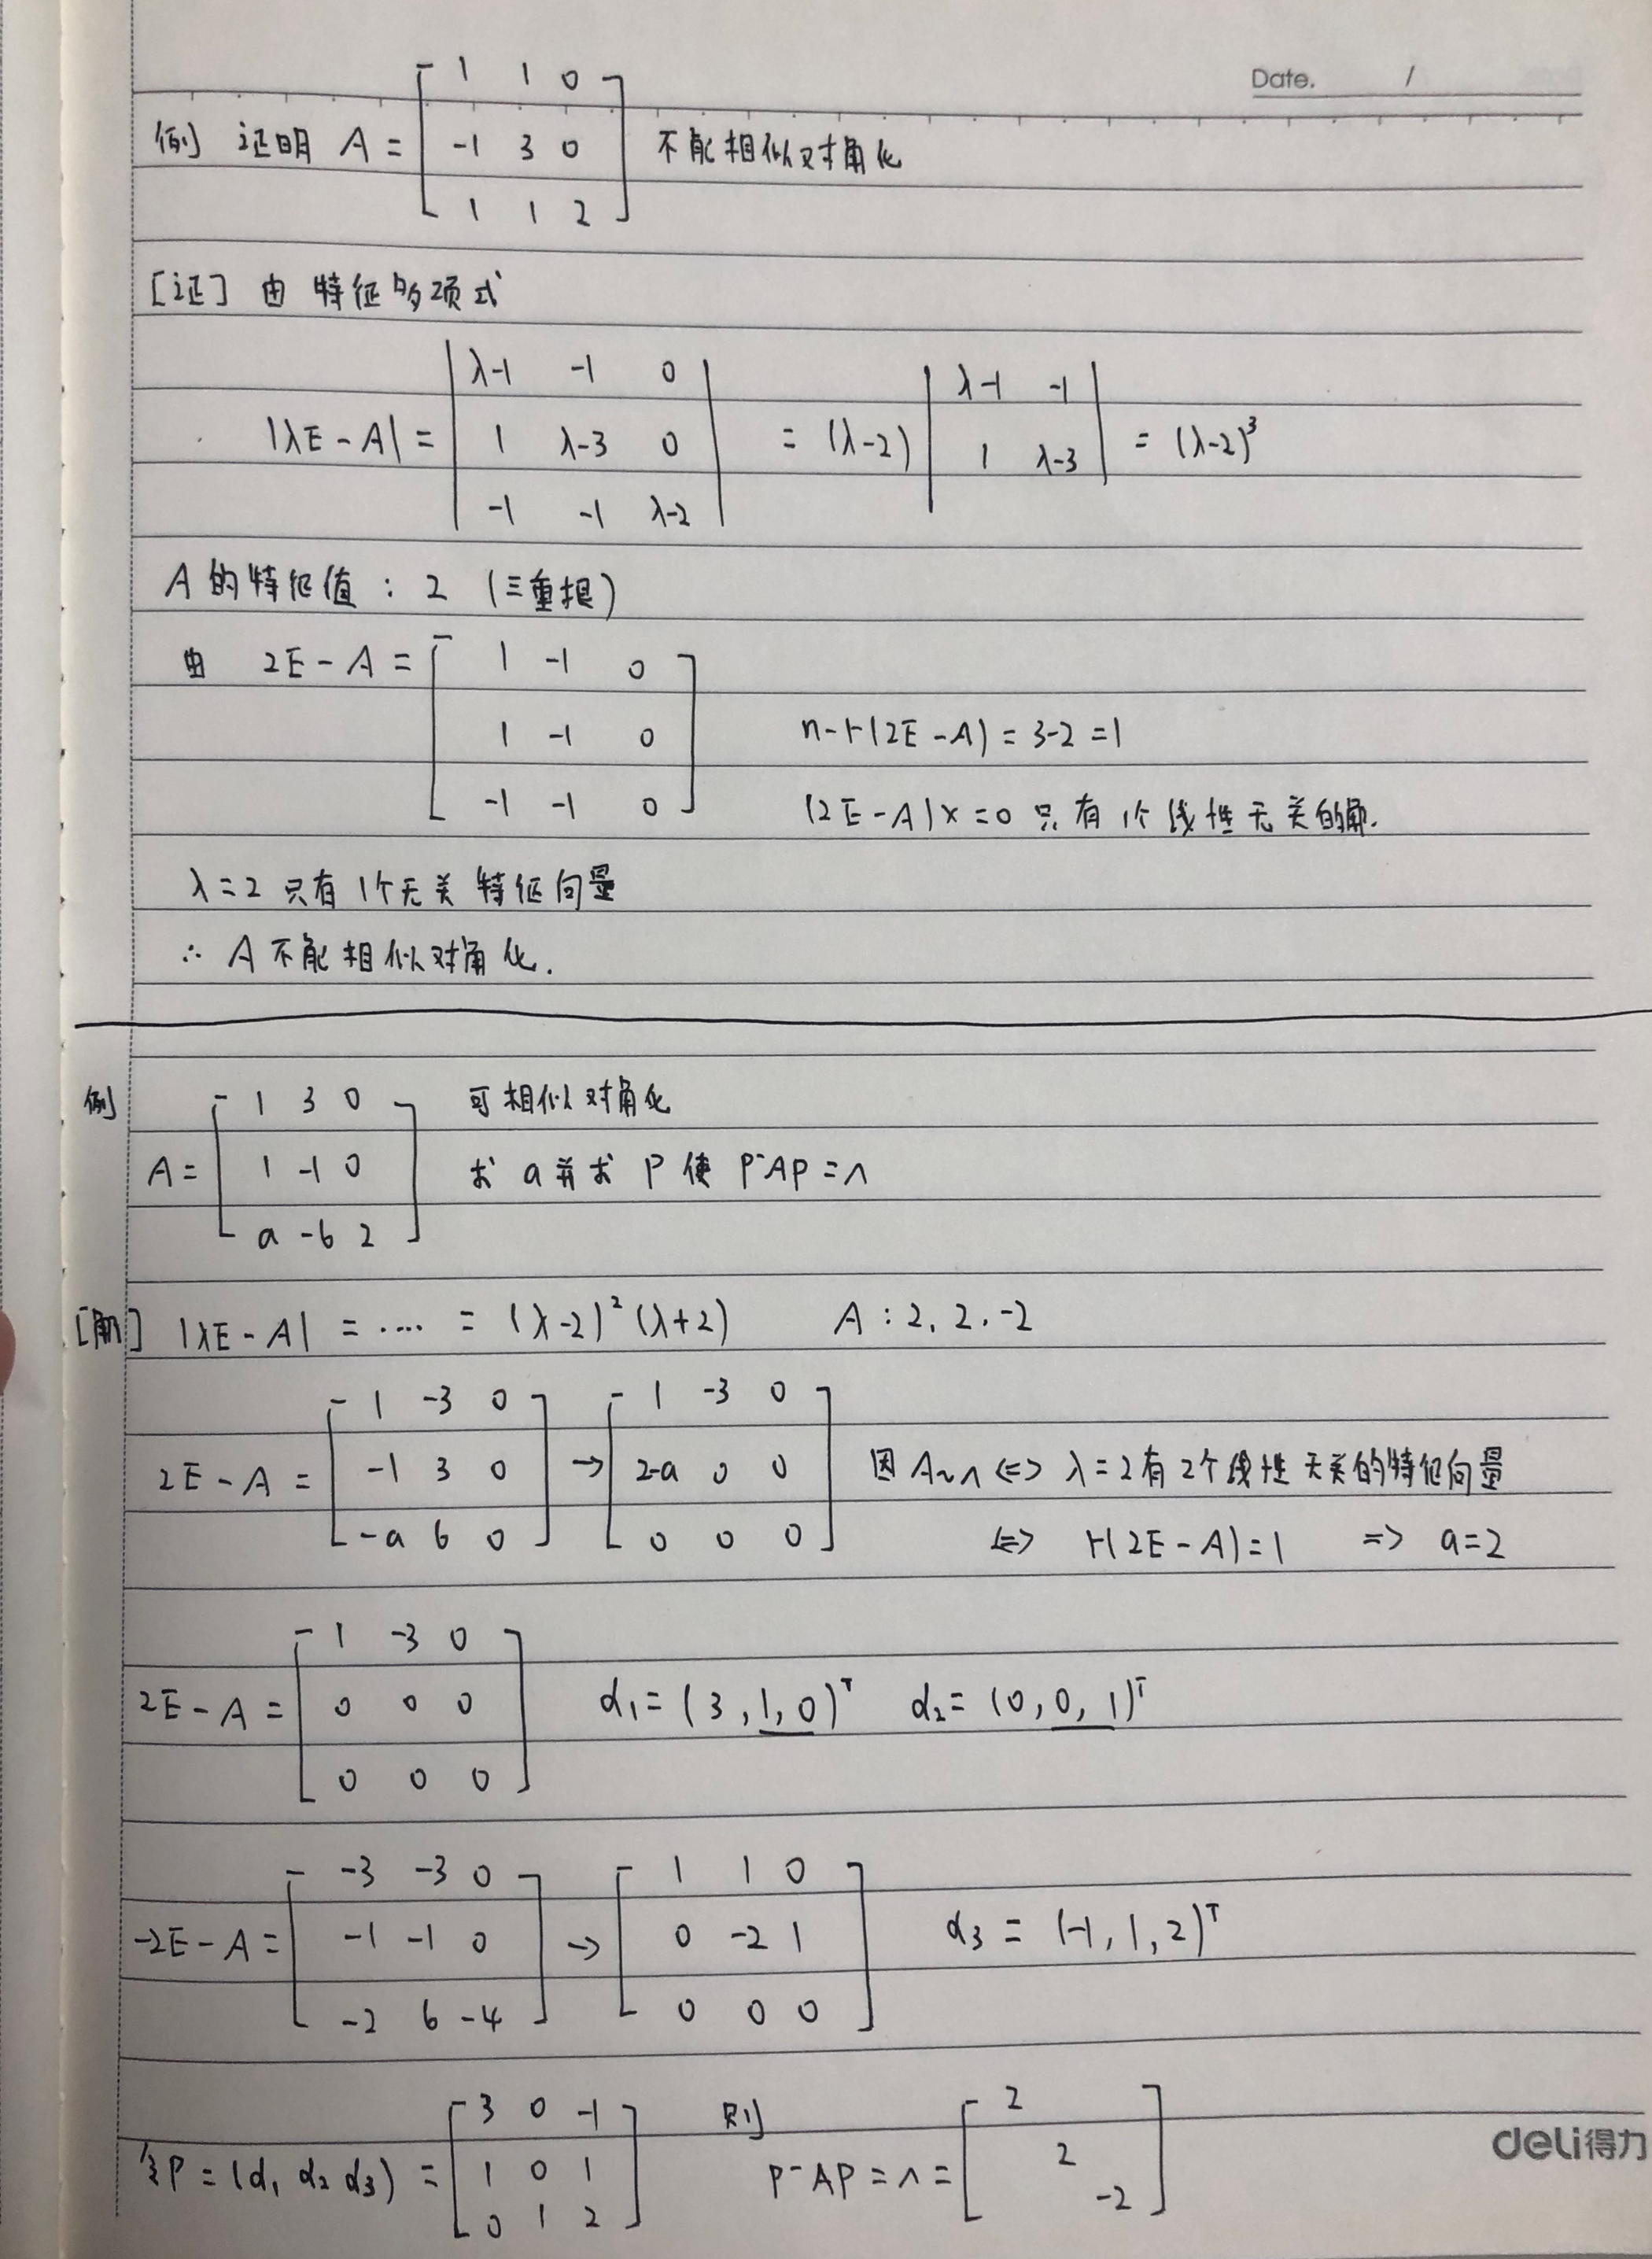 Date. /
例 证明 A = [1 1 0; -1 3 0; 1 1 2] 不能相似对角化
[证] 由 特征多项式
|λE-A| = |λ-1 -1 0; 1 λ-3 0; -1 -1 λ-2| = (λ-2) |λ-1 -1; 1 λ-3| = (λ-2)³
A 的特征值 : 2 (三重根)
由 2E-A = [1 -1 0; 1 -1 0; -1 -1 0]
n-r(2E-A) = 3-2 = 1
(2E-A)x = 0 只有1个线性无关的解.
λ=2 只有1个无关特征向量
∴ A 不能相似对角化.
例 A = [1 3 0; 1 -1 0; a -6 2] 可相似对角化
求 a 并求 P 使 P⁻AP = Λ
[解] |λE-A| = ···· = (λ-2)²(λ+2) A : 2, 2, -2
2E-A = [1 -3 0; -1 3 0; -a 6 0] → [1 -3 0; 2-a 0 0; 0 0 0] 因 A~Λ ⇔ λ=2有2个线性无关的特征向量
⇔ r(2E-A)=1 ⇒ a=2
2E-A = [1 -3 0; 0 0 0; 0 0 0] α₁ = (3,1,0)ᵀ α₂ = (0,0,1)ᵀ
-2E-A = [-3 -3 0; -1 -1 0; -2 6 -4] → [1 1 0; 0 -2 1; 0 0 0] α₃ = (-1,1,2)ᵀ
令P = (α₁ α₂ α₃) = [3 0 -1; 1 0 1; 0 1 2] 则 P⁻AP = Λ = [2; 2; -2]
deli得力